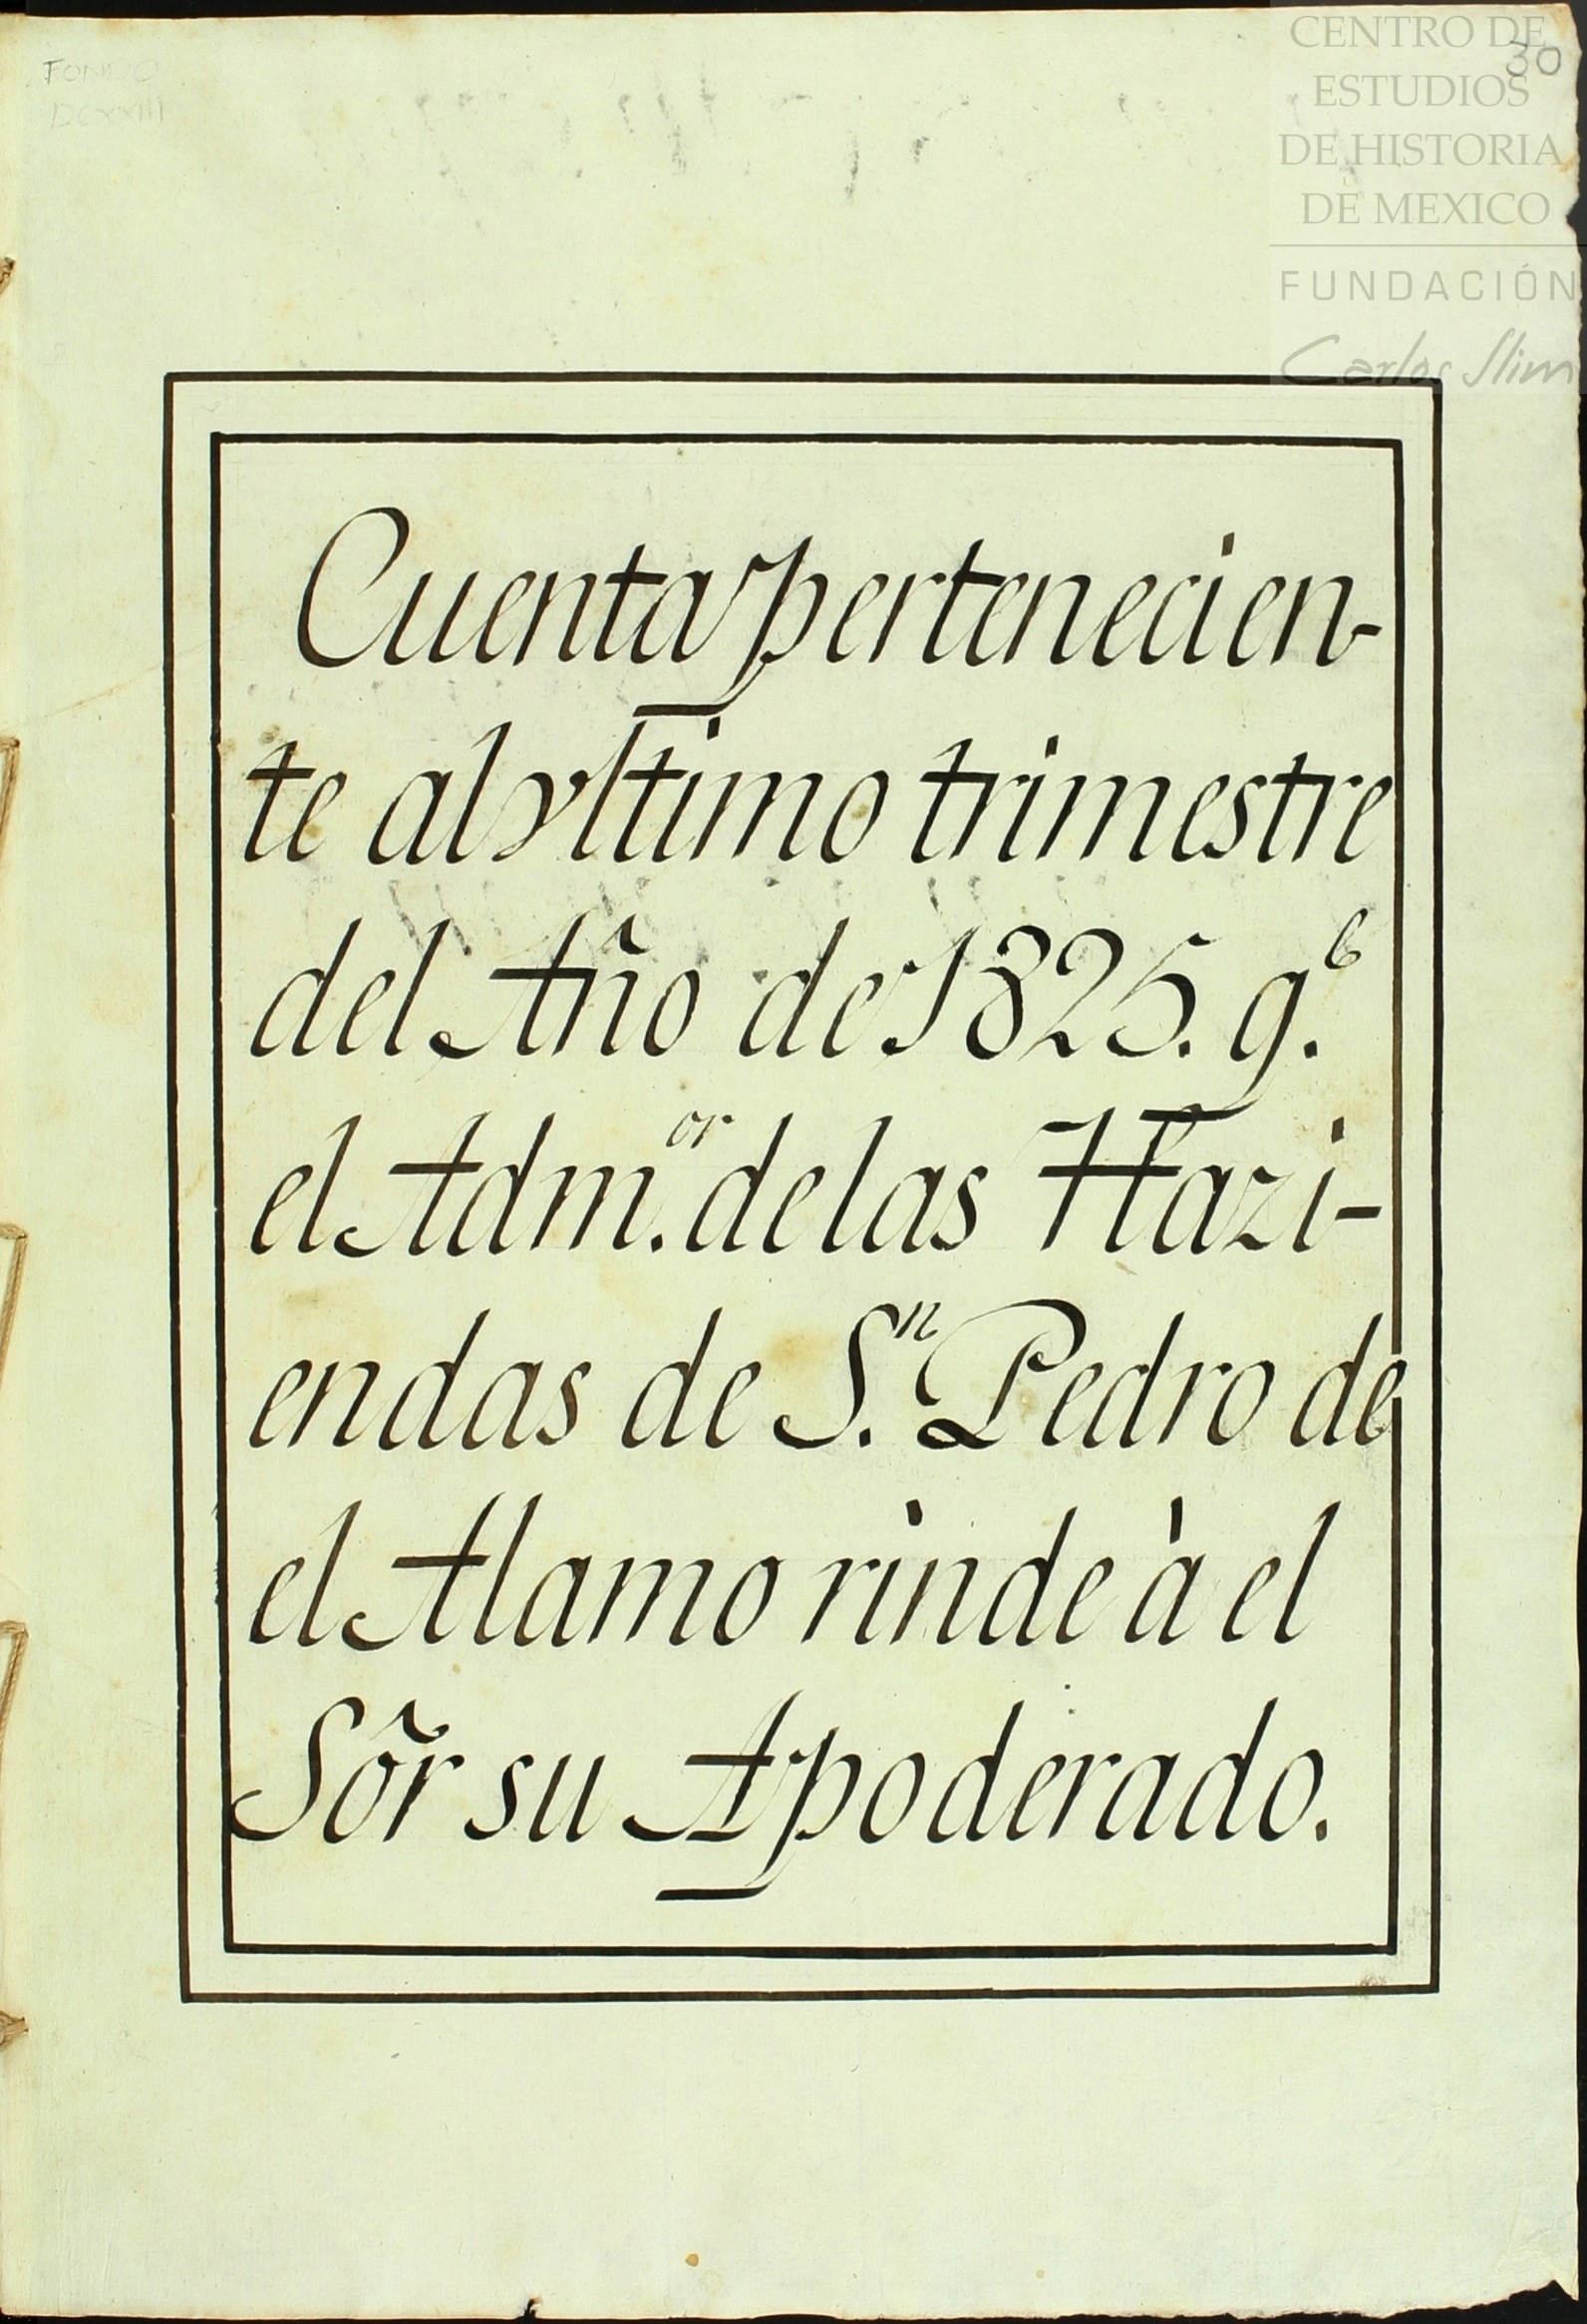 FONDO
DCXXIII
30
CENTRO DE
ESTUDIOS
DE HISTORIA
DE MEXICO
FUNDACIÓN
Carlos Slim
Cuenta pertenecien-
te al vltimo trimestre
del Año de 1825. q.e
el Adm.or de las Hazi-
endas de S.n Pedro de
el Alamo rinde à el
Sõr su Apoderado.